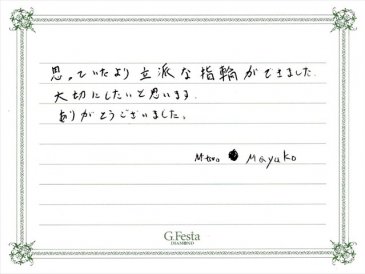 思っていたより立派な指輪ができました.
大切にしたいと思います.
ありがとうございました。
Mayuko
G.Festa
DIAMOND